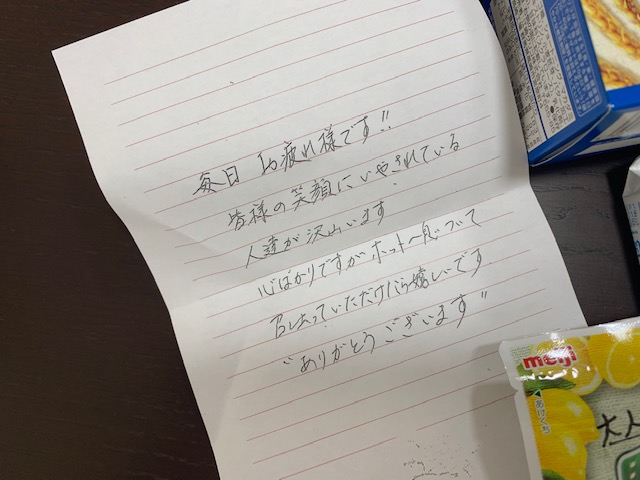 毎日 お疲れ様です!!
皆様の笑顔にいやされている
人達が沢山います
心ばかりですがホット一息ついて
召し上っていただけたら嬉しいです。
"ありがとうございます"
meiji
あけくち
大人